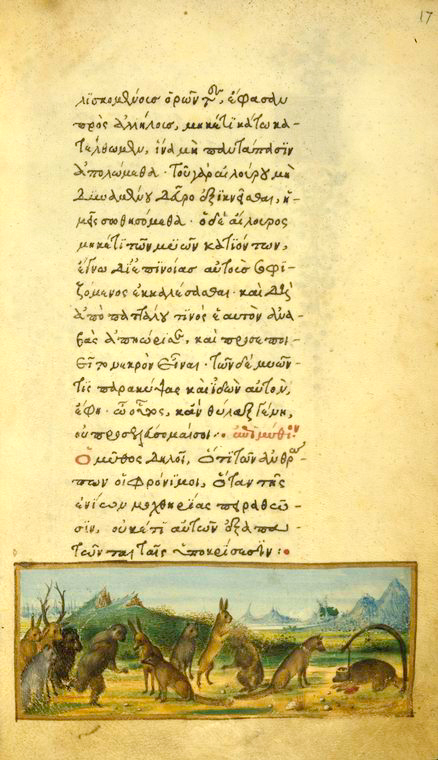 17
λισκομένους ὁρῶντες, ἔφασαν
πρὸς ἀλλήλους, μηκέτι κάτω κα-
τέλθωμεν, ἵνα μὴ παντάπασιν
ἀπολώμεθα· τοῦ γὰρ αἰλούρου μὴ
δυναμένου δεῦρο ἐξικνεῖσθαι, ἡ-
μεῖς σωθησόμεθα· ὁ δὲ αἴλουρος
μηκέτι τῶν μυῶν κατιόντων,
ἔγνω δι' ἐπινοίας αὐτοὺς σοφι-
ζόμενος ἐκκαλέσασθαι· καὶ
ἀπὸ παττάλου τινὸς ἑαυτὸν ἀνα-
βὰς ἀπῃώρησε, καὶ προσεποι-
εῖτο νεκρὸν εἶναι· τῶν δὲ μυῶν
τις παρακύψας καὶ ἰδὼν αὐτὸν,
ἔφη· ὦ οὗτος, κἂν θύλαξ γένῃ,
οὐ προσελεύσομαί σοι· ἐπιμύθιον
Ὁ μῦθος δηλοῖ, ὅτι τῶν ἀνθρώ-
πων οἱ φρόνιμοι, ὅταν τῆς
ἐνίων μοχθηρίας πειραθῶ-
σιν, οὐκέτι αὐτῶν ἐξαπα-
τῶνται ταῖς ὑποκρίσεσιν: